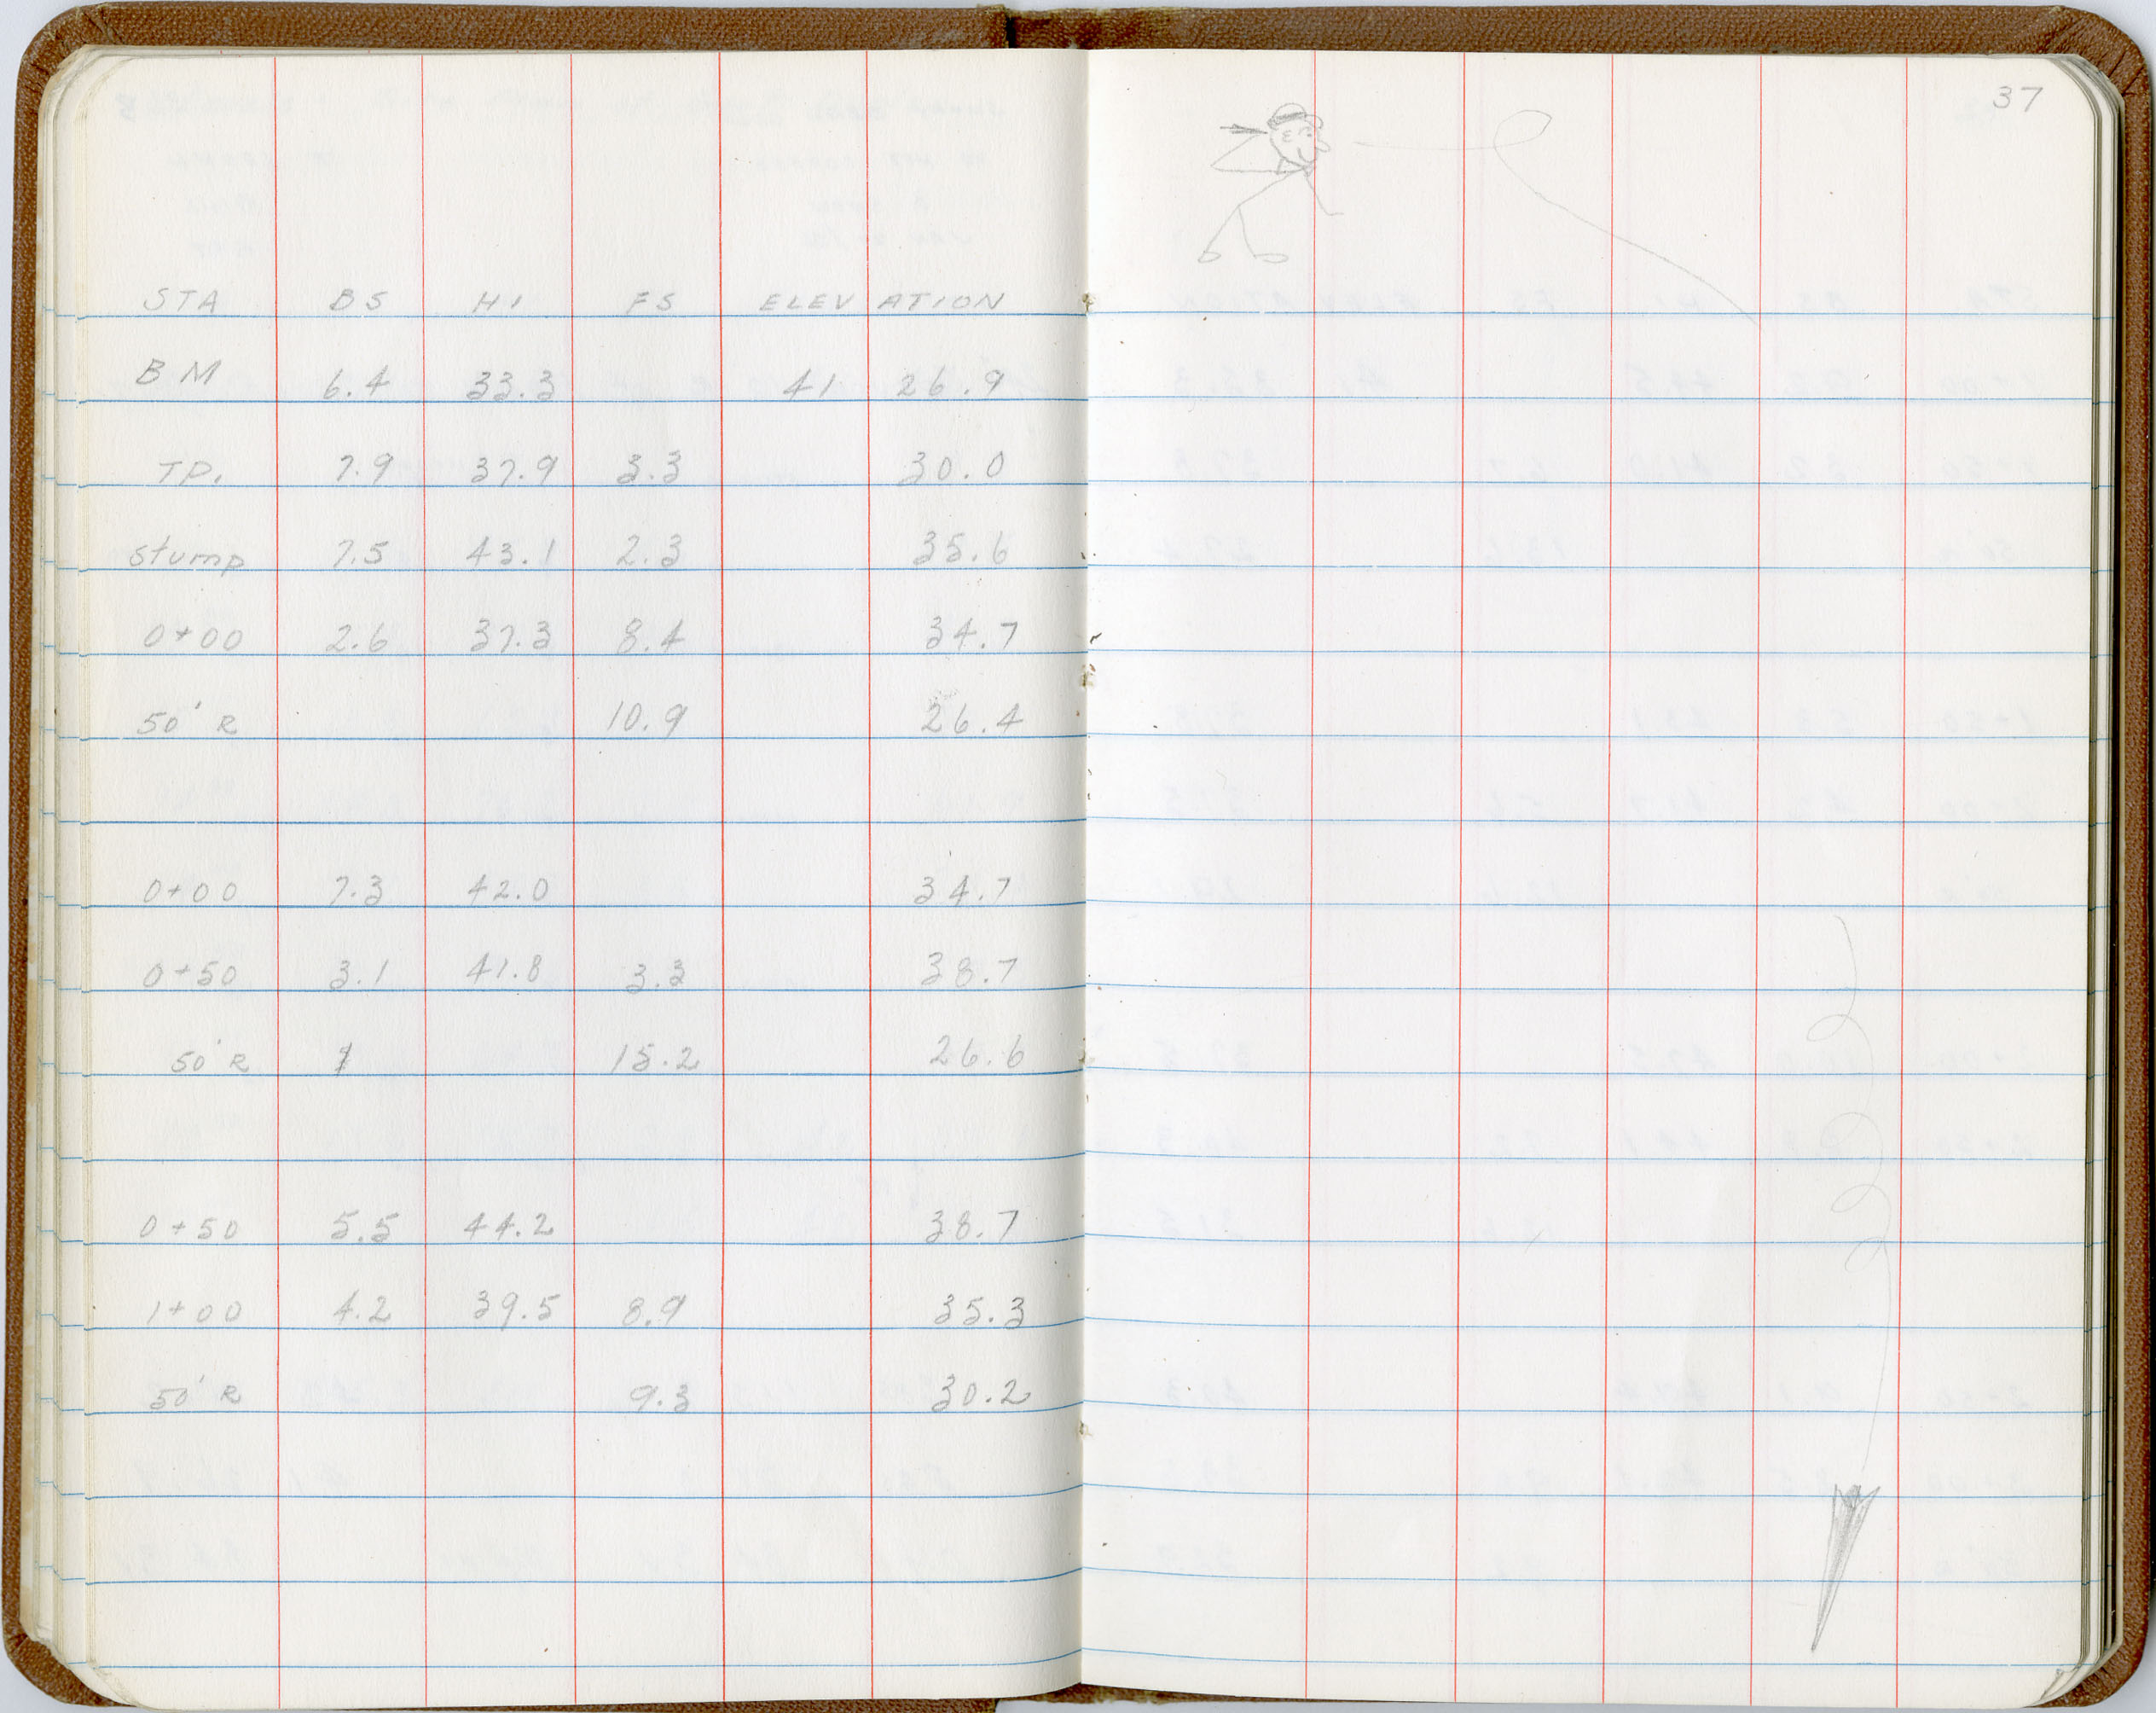 37
STA BS HI FS ELEVATION
BM 6.4 33.3 41 26.9
TP. 7.9 37.9 3.3 30.0
stump 7.5 43.1 2.3 35.6
0+00 2.6 37.3 8.4 34.7
50' R 10.9 26.4
0+00 7.3 42.0 34.7
0+50 3.1 41.8 3.3 38.7
50' R 15.2 26.6
0+50 5.5 44.2 38.7
1+00 4.2 39.5 8.9 35.3
50' R 9.3 30.2